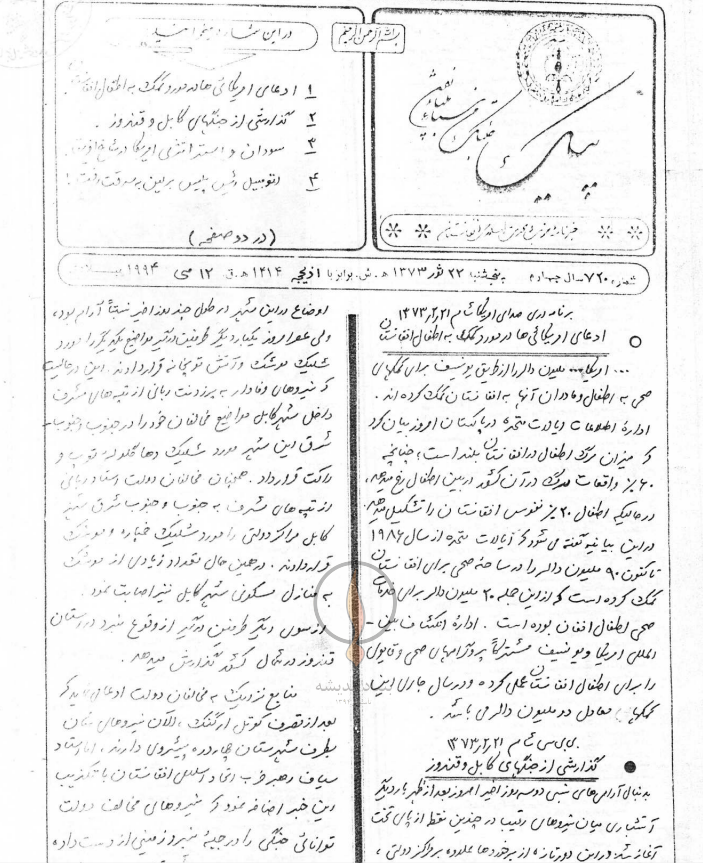 بسم الله الرحمن الرحیم
پیک
در این شماره میخوانید
۱ ادعای امریکائی ها در مورد کمک به اطفال افغانستان
۲ گذارشی از جنگهای کابل و قندوز .
۳ سودان و استراتژی امریکا در شاخ افریقا .
۴ اتومبیل رئیس پلیس برلین به سرقت رفت !
(در دو صفحه)
شماره ۷۲۰ سال چهارم پنجشنبه ۲۲ ثور ۱۳۷۳ ه.ش. برابر با اذیحجه ۱۴۱۴ ه.ق ۱۲ می ۱۹۹۴
برنامه دری صدای امریکا شام ۱۳۷۳/۲/۲۱
ادعای امریکائی ها در مورد کمک به اطفال افغانستان
... امریکا ملیون دالر را از طریق یونسیف برای کمکهای
صحی به اطفال و مادران آنها به افغانستان کمک کرده اند .
ادارهٔ اطلاعات ایالات متحده در پاکستان امروز بیان کرد
که میزان مرگ اطفال در افغانستان بلند است ، چنانچه
۶۰ ٪ واقعات مرگ در آن کشور در بین اطفال رخ میدهد .
در حالیکه اطفال ۲۰ ٪ نفوس افغانستان را تشکیل میدهد
در این بیانیه گفته می شود که ایالات متحده از سال ۱۹۸۶
تا کنون ۹۰ ملیون دالر را در ساحهٔ صحی برای افغانستان
کمک کرده است که از این جمله ۲۰ ملیون دالر برای خدمات
صحی اطفال افغان بوده است . ادارهٔ انکشاف بین -
المللی امریکا و یونسیف مشترکاً پروگرامهای صحی و قابوی
را برای اطفال افغانستان عملی کرده و در سال جاری این
کمکها معادل دو ملیون دالر می باشد .
بی بی سی شام ۱۳۷۳/۲/۲۱
گذارشی از جنگهای کابل و قندوز
به دنبال آرامی های نسبی دو سه روز اخیر امروز بعد از ظهر بار دیگر
آتشباری میان نیروهای رقیب در چندین نقطه از پای تخت
آغاز شد در این دور تازه از برخوردها علاوه بر مراکز دولتی ،
اوضاع در این شهر در طول چند روز اخیر نسبتاً آرام بود ،
ولی عصر امروز یکبار دیگر طرفین درگیر مواضع یکدیگر را مورد
شلیک موشک و آتش توپخانه قرار دادند . این در حالیست
که نیروهای وفادار به برهان الدین ربانی از تپه های مشرف
داخل شهر کابل مواضع مخالفان خود را در جنوب و جنوب -
شرق این شهر مورد شلیک دهها گلوله توپ و
راکت قرار داد . همچنان مخالفان دولت استاد ربانی
از تپه های مشرف به جنوب و جنوب شرق شهر
کابل مراکز دولتی را مورد شلیک خمپاره و موشک
قرار دادند . در همین حال تعداد زیادی از موشک
به منازل مسکونی شهر کابل نیز اصابت نمود .
از سوی دیگر طرفین درگیر از وقوع نبرد در استان
قندوز در شمال کشور گذارش میدهد .
منابع نزدیک به مخالفان دولت ادعا می نماید که
بعد از تصرف کوتل ارگنک ، الان نیروهای شان
بطرف شهرستان چهاردره پیشروی دارند . اما استاد
سیاف رهبر حزب اتحاد اسلامی افغانستان با تکذیب
این خبر اضافه نمود که نیروهای مخالف دولت
توانائی جنگی را در جبهه نبرد زمینی از دست داده